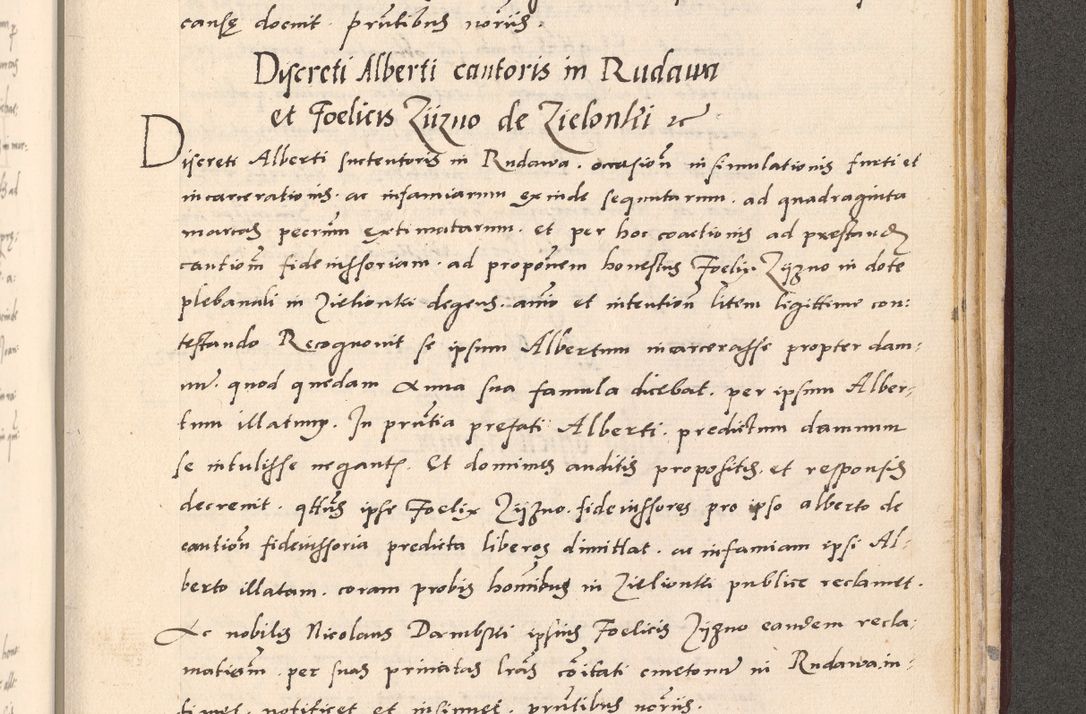 causę docuit . prn̄tibus noriis .
Discreti Alberti cantoris in Rudawa
et Foelicis Ziizno de Zielonki ⁊c
Discreti Alberti sustentoris in Rudawa . occasioñ insimulationis furti et
incarcerationis . ac infamiarum exinde sequutarum . ad quadraginta
marcas pecun̄ extimatarum . et per hoc coactionis ad prestand
cautiom̄ fideiussoriam . ad propon̄em honestus Foelix Zijzno in dote
plebanali in Zielionki degens . animo et intention̄ litem ligittime con:
testando Recognouit se ipsum Albertum incarcerasse propter dam-
nu . quod quedam Anna sua famula dicebat . per ipsum Alber-
tum illatum . In prn̄tia prefati Alberti . predictum damnum
se intulisse negantis . Et dominus auditis propositis . et responsis
decreuit . qtt̄us ipse Foelix Zijzno . fideiussores pro ipso alberto de
caution̄ fideiussoria predicta liberos dimittat . ac infamiam ipsi Al-
berto illatam . coram probis hom̄ibus in Zielionki publice reclamet .
Ac nobilis Nicolaus Dambski ipsius Foelicis Zijzno eandem recla-
matiom̄ . per suas priuatas lr̄as co͞itati cmetonu in Rudawa in-
timet . notificet et insinuet . prn̄tibus noriis .